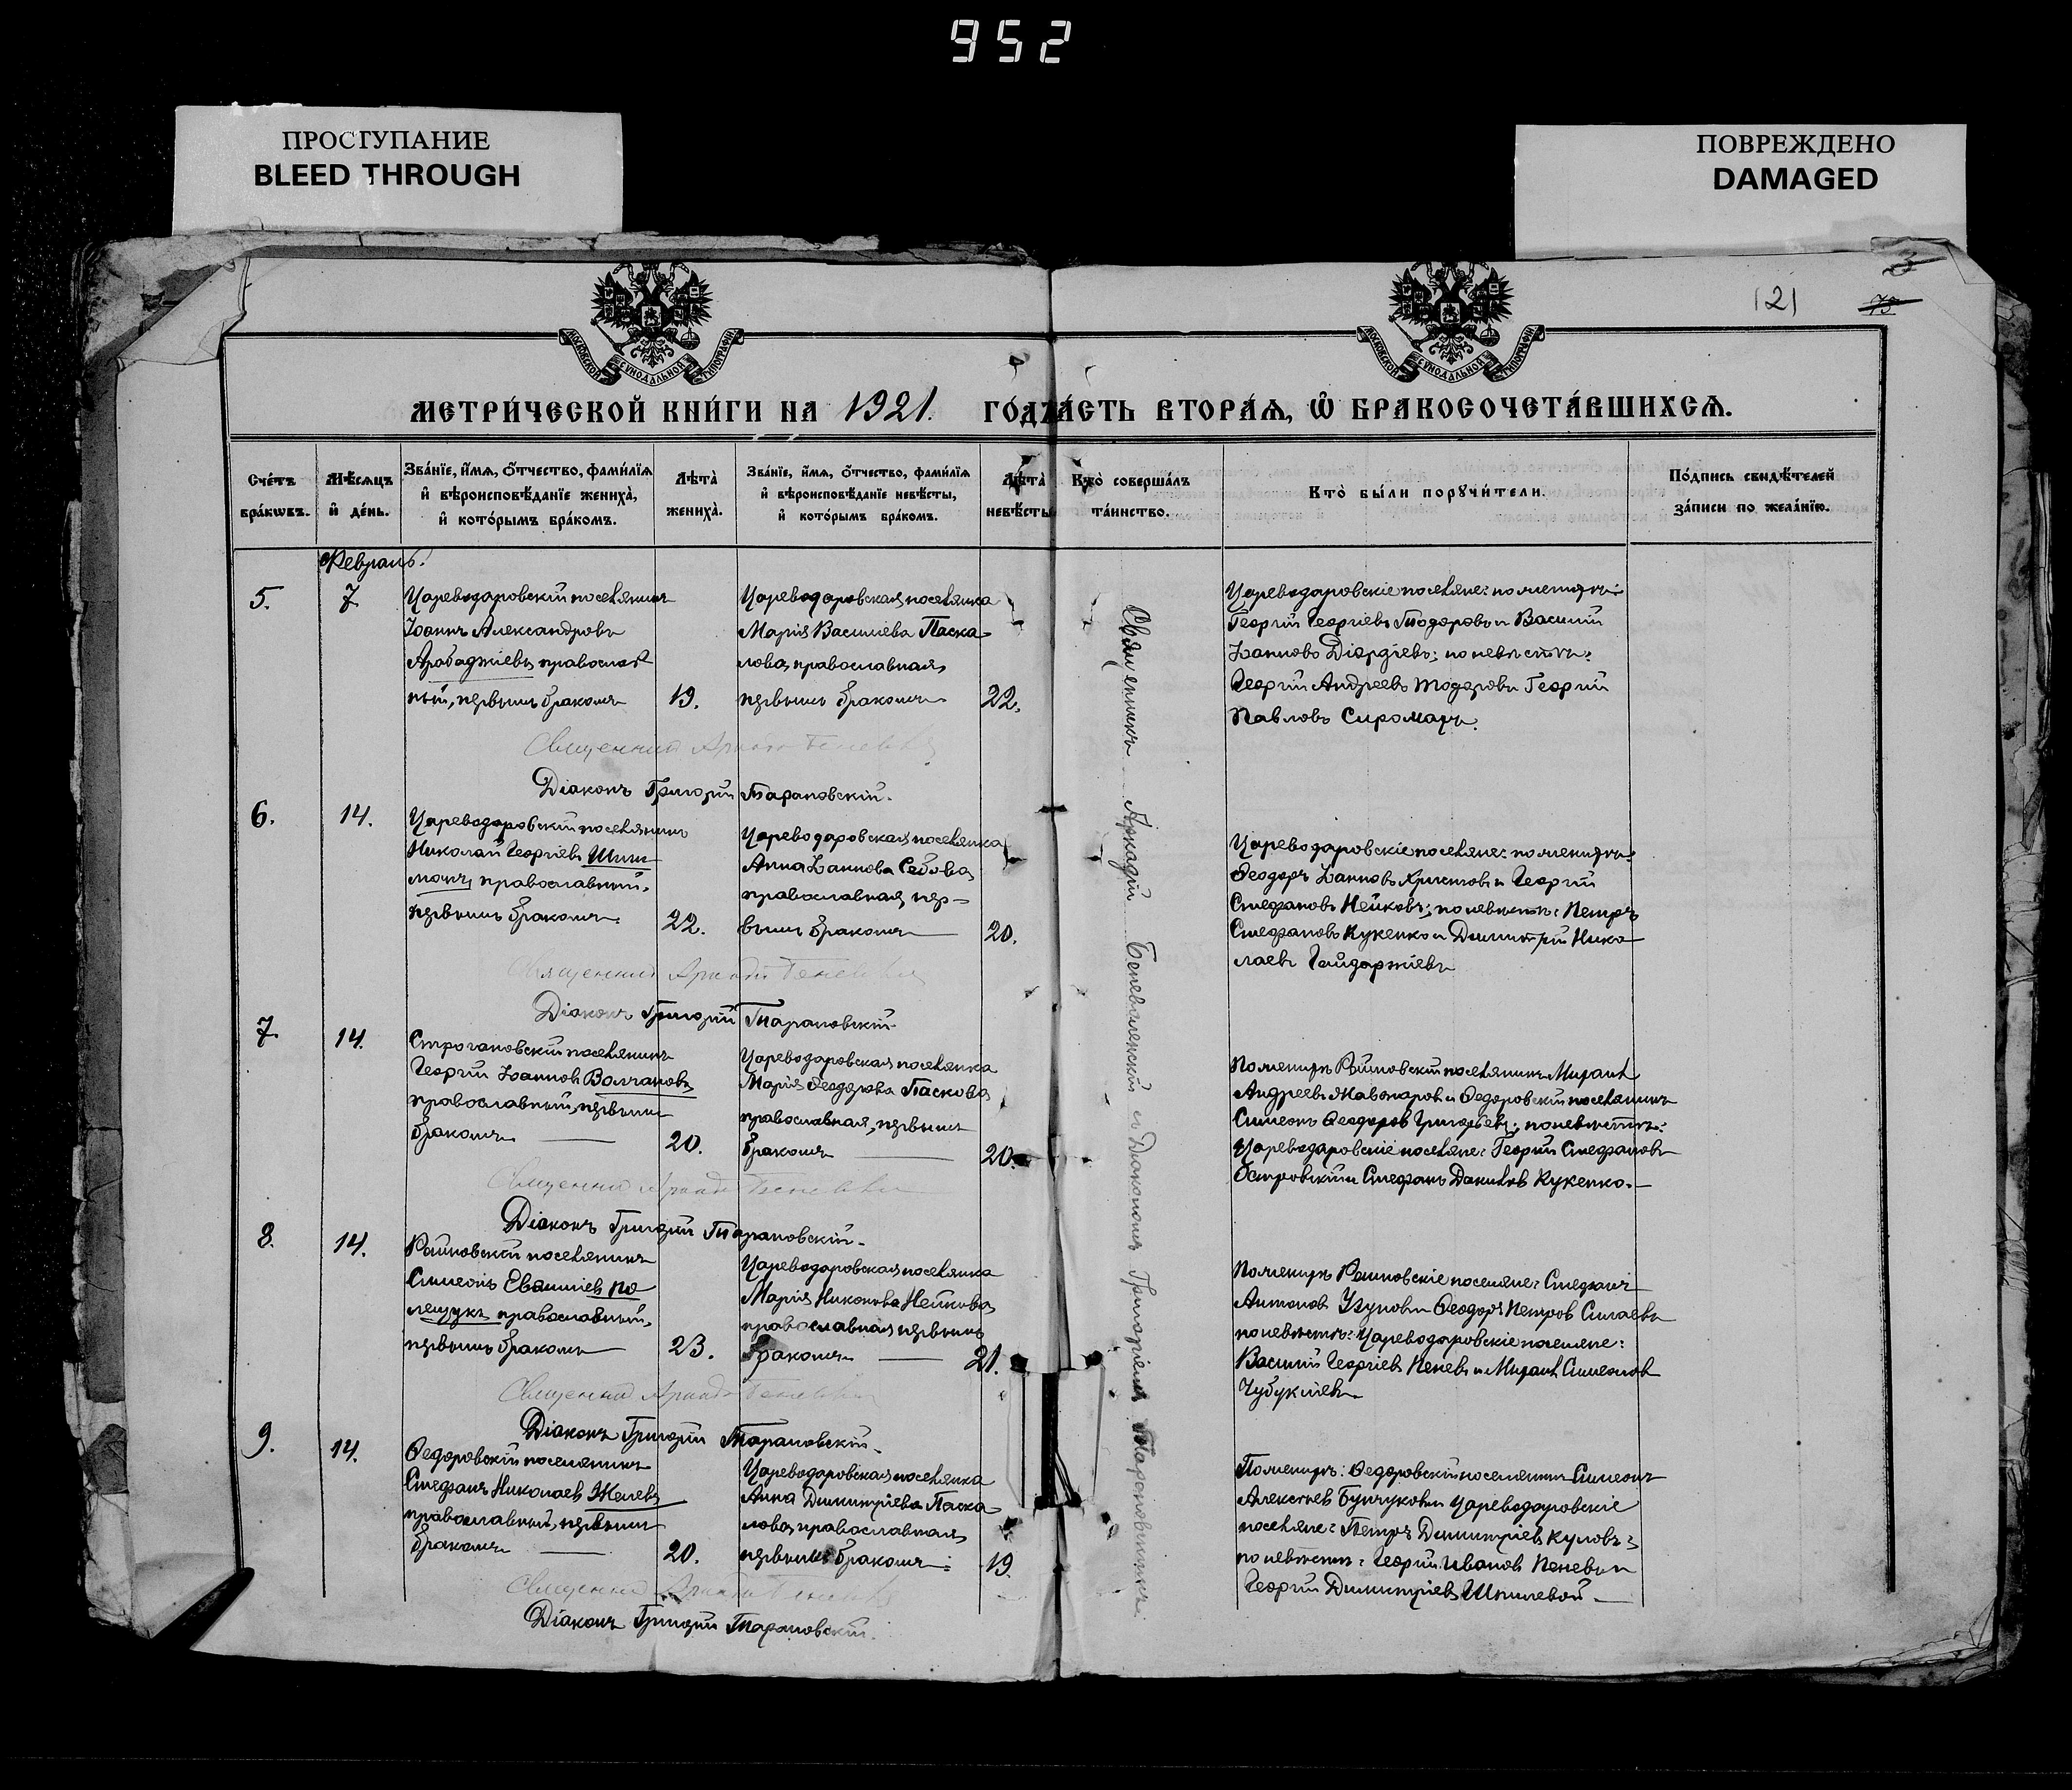 952
ПРОСТУПАНИЕ
BLEED THROUGH
ПОВРЕЖДЕНО
DAMAGED
3
121
75
МОСКОВСКОЙ СѴНОДАЛЬНОЙ ТИПОГРАФІИ
МОСКОВСКОЙ СѴНОДАЛЬНОЙ ТИПОГРАФІИ
МЕТРИ́ЧЕСКОЙ КНИ́ГИ НА 1921. ГО́ДЪ ЧА́СТЬ ВТОРА́Я, Ѿ БРАКОСОЧЕТА́ВШИХСЯ.
Сче́тъ бра́кѡвъ.
Мѣ́сяцъ и҆ де́нь.
Зва́нїе, и҆́мѧ, ѻ҆́тчество, фами́лїѧ
и҆ вѣроисповѣ́данїе жениха̀,
и҆ кото́рымъ бра́комъ.
Лѣта̀ жениха̀.
Зва́нїе, и҆́мѧ, ѻ҆́тчество, фами́лїѧ
и҆ вѣроисповѣ́данїе невѣ́сты,
и҆ кото́рымъ бра́комъ.
Лѣта̀ невѣ́сты
Кто̀ соверша́лъ та́инство.
Кто̀ бы́ли порꙋчи́тели.
По́дпись свидѣ́телей за́писи по жела́нїю.
Февраль.
5.
7
Цареводаровскій поселянинъ
Іоаннъ Александровъ
Арабаджіевъ, православ
ный, первымъ бракомъ
19.
Цареводаровская поселянка
Марія Васильева Паска
лова, православная,
первымъ бракомъ
22.
Цареводаровскіе поселяне: по женихѣ:
Георгій Георгіевъ Тодоровъ и Василій
Іоанновъ Діордіевъ; по невѣстѣ:
Георгій Андреевъ Тодоровъ и Георгій
Павловъ Сиромаръ.
Священник Аркадій
Діаконъ Григорій Тарановскій.
6.
14.
Цареводаровскій поселянинъ
Николай Георгіевъ Шиш
манъ, православный,
первымъ бракомъ.
22.
Цареводаровская поселянка
Анна Іаннова Себова,
православная, пер-
вымъ бракомъ
20.
Цареводаровскіе поселяне: по женихѣ:
Ѳеодоръ Іанновъ Христовъ и Георгій
Стефановъ Нейковъ; по невѣстѣ: Петръ
Стефановъ Кукенко и Димитрій Нико
лаевъ Гайдаржіевъ
Священник Аркадій
Діаконъ Григорій Тарановскій.
7.
14.
Строгановскій поселянинъ
Георгій Іаннов Волчановъ,
православный, первымъ
бракомъ
20.
Цареводаровская поселянка
Марія Ѳеодорова Паскова
православная, первымъ
бракомъ
20.
По женихѣ Райновскій поселянинъ Михаил
Андреевъ и Ѳедоровскій поселянинъ
Симеонъ Ѳеодоров Григорьевъ; по невѣстѣ:
Цареводаровскіе поселяне: Георгій Стефановъ
Островскій и Стефанъ Данилов Кукенко.
Священник Аркадій
Діаконъ Григорій Тарановскій.
8.
14.
Райновскій поселянинъ
Симеонъ По
лещукъ, православный,
первымъ бракомъ
23.
Цареводаровская поселянка
Марія Никонова Нейкова,
православная первымъ
бракомъ
21.
По женихѣ Райновскіе поселяне: Стефанъ
Антонов Узуновъ и Ѳеодоръ Петров Силаевъ
по невѣстѣ: Цареводаровскіе поселяне:
Василій Георгіев Пеневъ и Михаил Симеонов
Чубукчіевъ
Священник Аркадій
Діаконъ Григорій Тарановскій.
9.
14.
Ѳедоровскій поселянинъ
Стефанъ Николаев Желевъ,
православный, первымъ
бракомъ
20.
Цареводаровская поселянка
Анна Димитріева Паска
лова, православная,
первымъ бракомъ:
19.
По женихѣ: Ѳедоровскій поселянинъ Симеонъ
Алексѣев Бунчуковъ и Цареводаровскіе
поселяне: Петръ Димитріев Куловъ;
по невѣстѣ: Георгій Иванов Пеневъ и
Георгій Димитріев Шпилевой.
Священник Аркадій
Діаконъ Григорій Тарановскій.
Священникъ Аркадій съ Діакономъ Григоріемъ Тарановскимъ.